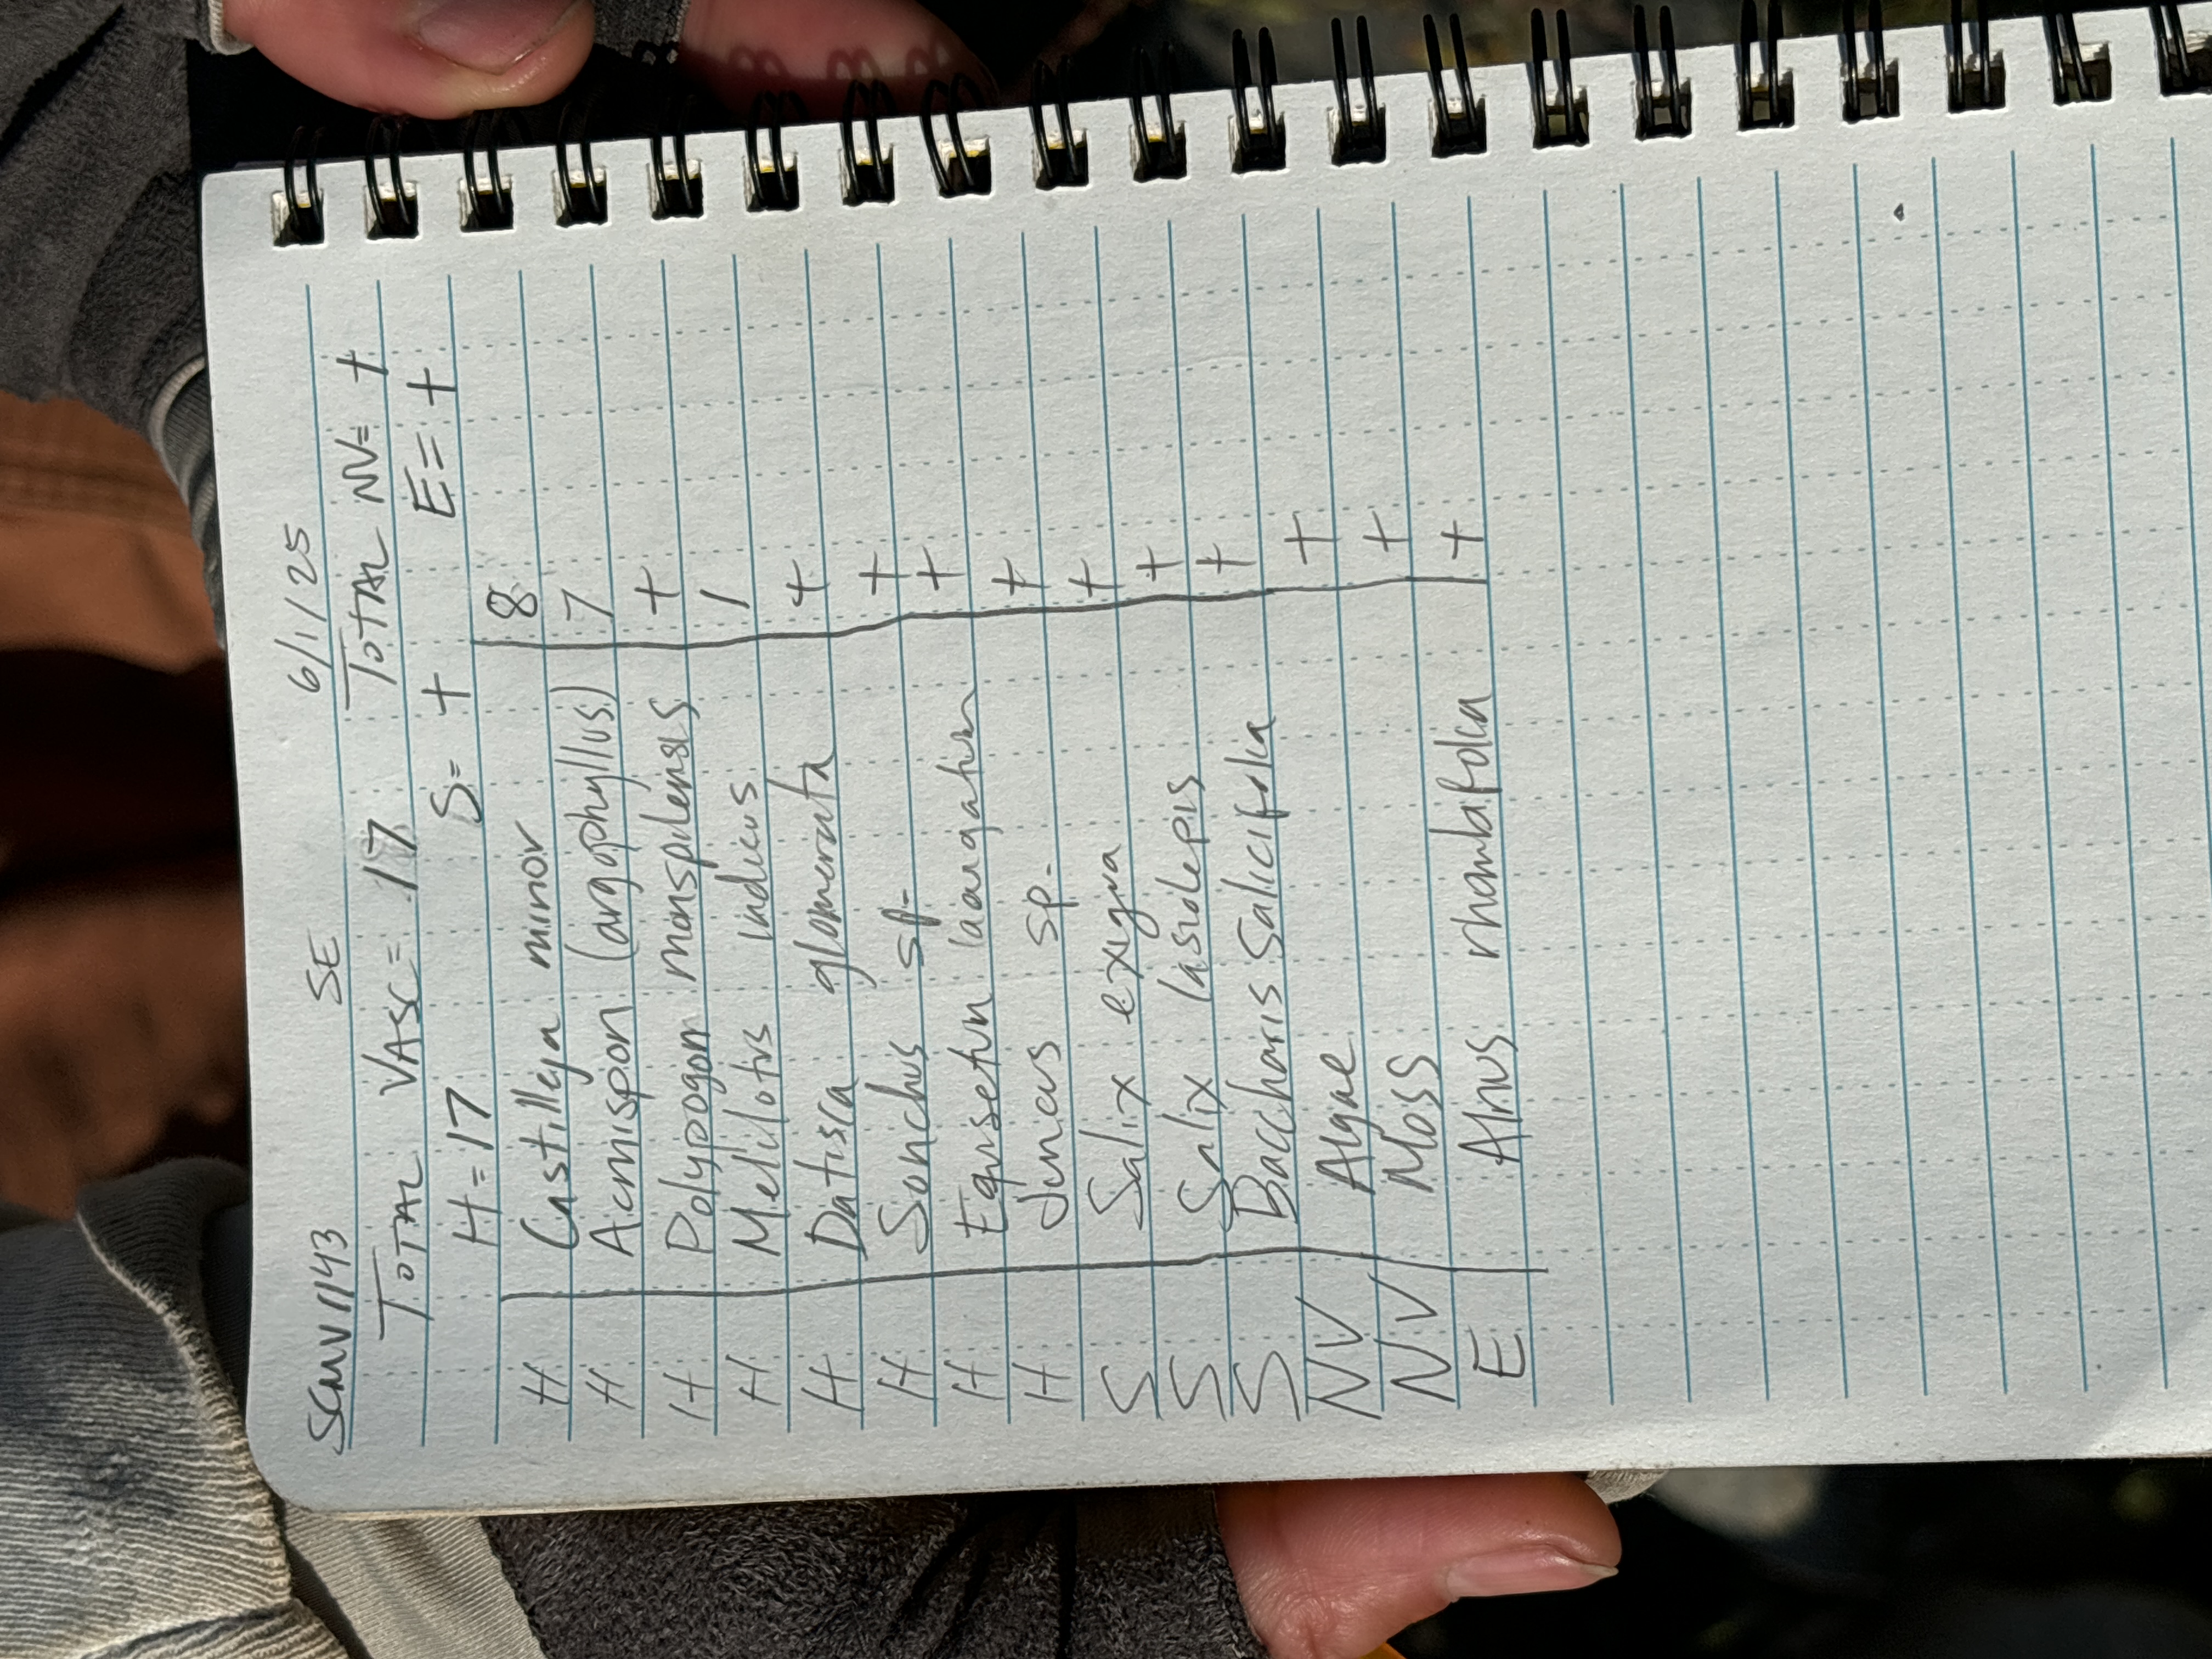 SCMV1143 SE 6/1/25
TOTAL VASC= 17 TOTAL NV= +
H=17 S= + E= +
H Castilleja minor 8
H Acmispon (argophyllus) 7
H Polypogon monspilensis +
H Melilotus indicus 1
H Datisca glomerata +
H Sonchus sp. +
H Equisetum +
H Juncus sp. +
S Salix exigua +
S Salix lasiolepis +
S Baccharis salicifolia +
NV Algae +
NV Moss +
E Alnus rhombifolia +